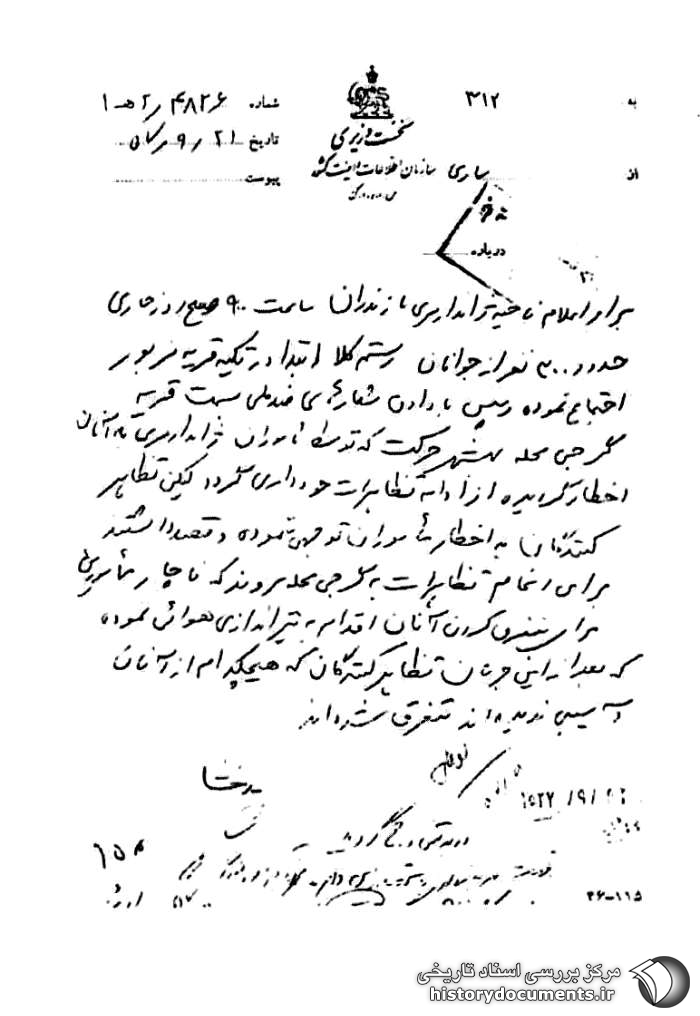 به ۳۱۲ شماره ۴۸۲۶ / ۲هـ ۱
نخست وزیری
تاریخ ۵۷/۹/۲۱
از ساری سازمان اطلاعات و امنیت کشور پیوست
س.ا.و.ا.ک
درباره
برابر اعلام ناحیه ژاندارمری مازندران ساعت ۹۰۰ صبح روز جاری
حدود ۳۰۰ نفر از جوانان رستم کلا ابتدا در تکیه قریه مزبور
اجتماع نموده و سپس با دادن شعارهای ضد ملی بسمت قریه
گرجی محله بهشهر حرکت که توسط مأموران ژاندارمری به آنان
اخطار گردیده از ادامه تظاهرات خودداری گردد لیکن تظاهر
کنندگان به اخطار مأموران توجهی ننموده و قصد داشتند
برای انجام تظاهرات به گرجی محله بروند که ناچار مأمورین
برای متفرق کردن آنان اقدام به تیراندازی هوائی نموده
که بعد از این جریان تظاهر کنندگان که هیچکدام از آنان
آسیبی ندیده‌اند متفرق شده‌اند
۳۶-۱۱۵
مرکز بررسی اسناد تاریخی
historydocuments.ir